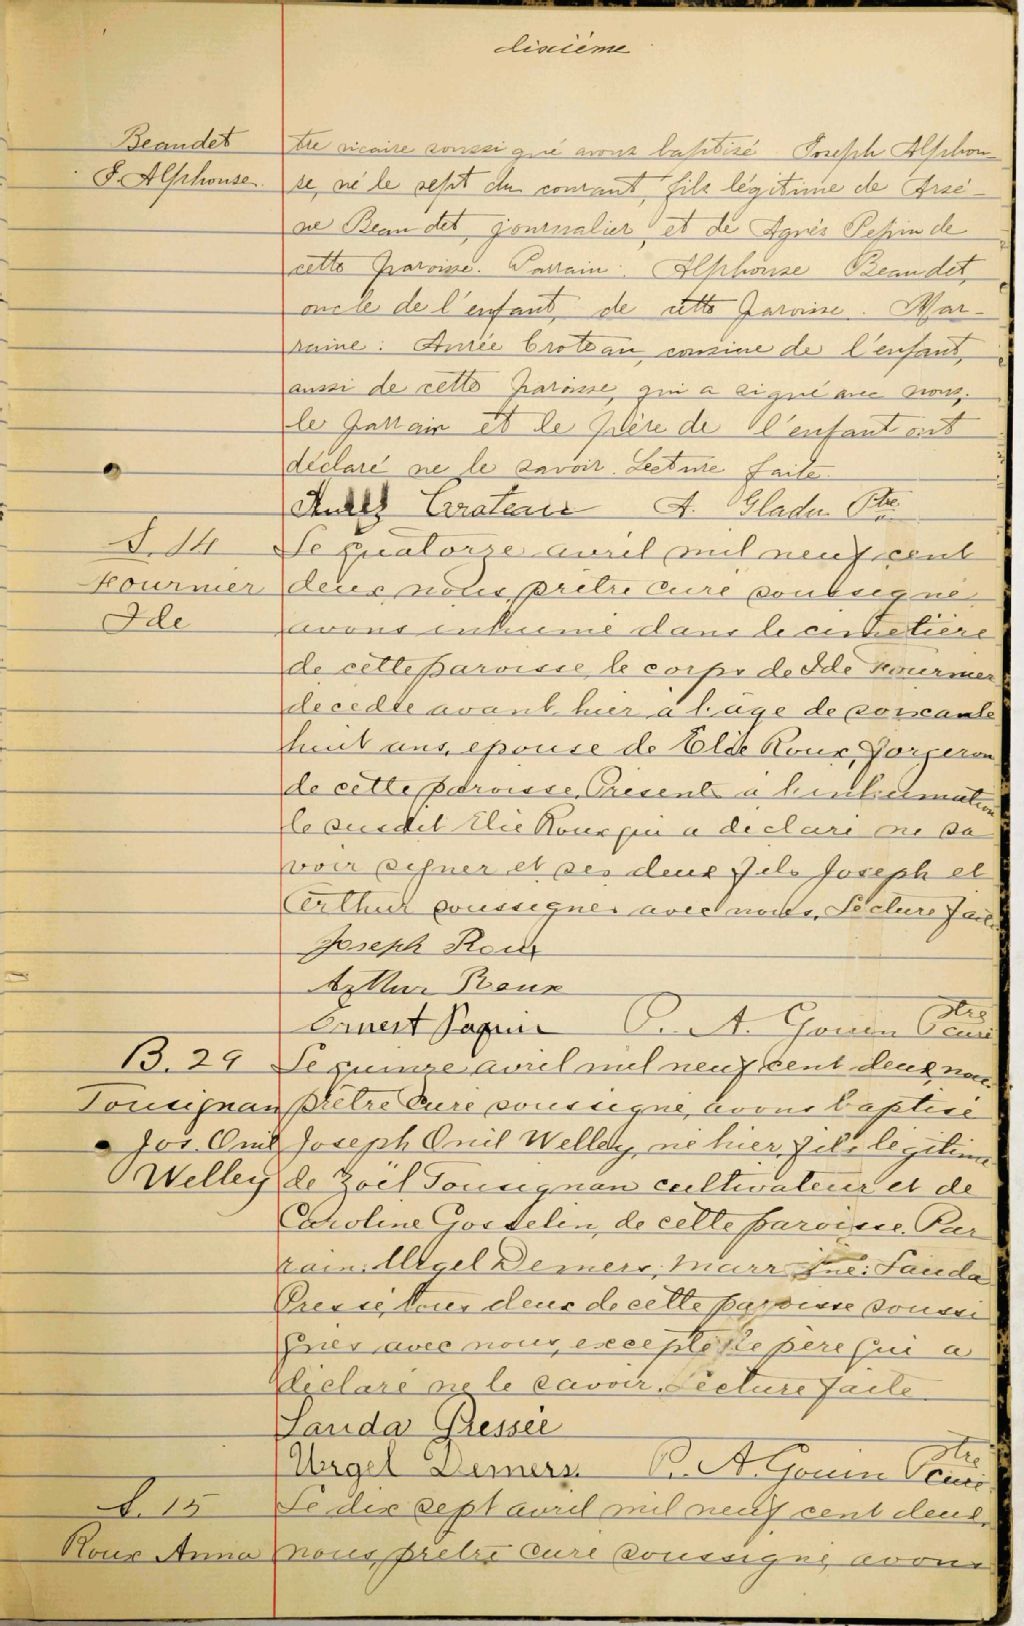 dixième
Beaudet
J. Alphonse.
tre vicaire soussigné avons baptisé Joseph Alphon-
se, né le sept du courant, fils légitime de Arsè-
ne Beaudet, journalier, et de Agnès Pepin de
cette paroisse. Parrain: Alphonse Beaudet,
oncle de l'enfant, de cette paroisse. Mar-
raine: Auré Croteau, cousine de l'enfant,
aussi de cette paroisse, qui a signé avec nous;
le parrain et le père de l'enfant ont
déclaré ne le savoir. Lecture faite.
Croteau A. Gladu Ptre
S. 14
Fournier
Ide
Le quatorze avril mil neuf cent
deux, nous, prêtre curé soussigné
avons inhumé dans le cimetière
de cette paroisse, le corps de Ide Fournier
décédée avant hier à l'âge de soixante
huit ans, épouse de Elie Roux, forgeron
de cette paroisse. Présents à l'inhumation
le susdit Elie Roux qui a déclaré ne sa
voir signer et ses deux fils Joseph et
Arthur soussignés avec nous. Lecture faite
Joseph Roux
Arthur Roux
Ernest Paquin P. A. Gouin Ptre curé
B. 29
Tousignan
Jos. Onil
Welley
Le quinze avril mil neuf cent deux, nous
prêtre curé soussigné, avons baptisé
Joseph Onil Welley, né hier, fils légitime
de Zoël Tousignan cultivateur et de
Caroline Gosselin, de cette paroisse. Par
rain: Urgel Demers, Marraine: Landa
Pressé, tous deux de cette paroisse soussi
gnés avec nous, excepté le père qui a
déclaré ne le savoir. Lecture faite.
Landa Pressée
Urgel Demers. P. A. Gouin Ptre curé
S. 15
Roux Anna
Le dix sept avril mil neuf cent deux,
nous, prêtre curé soussigné, avons